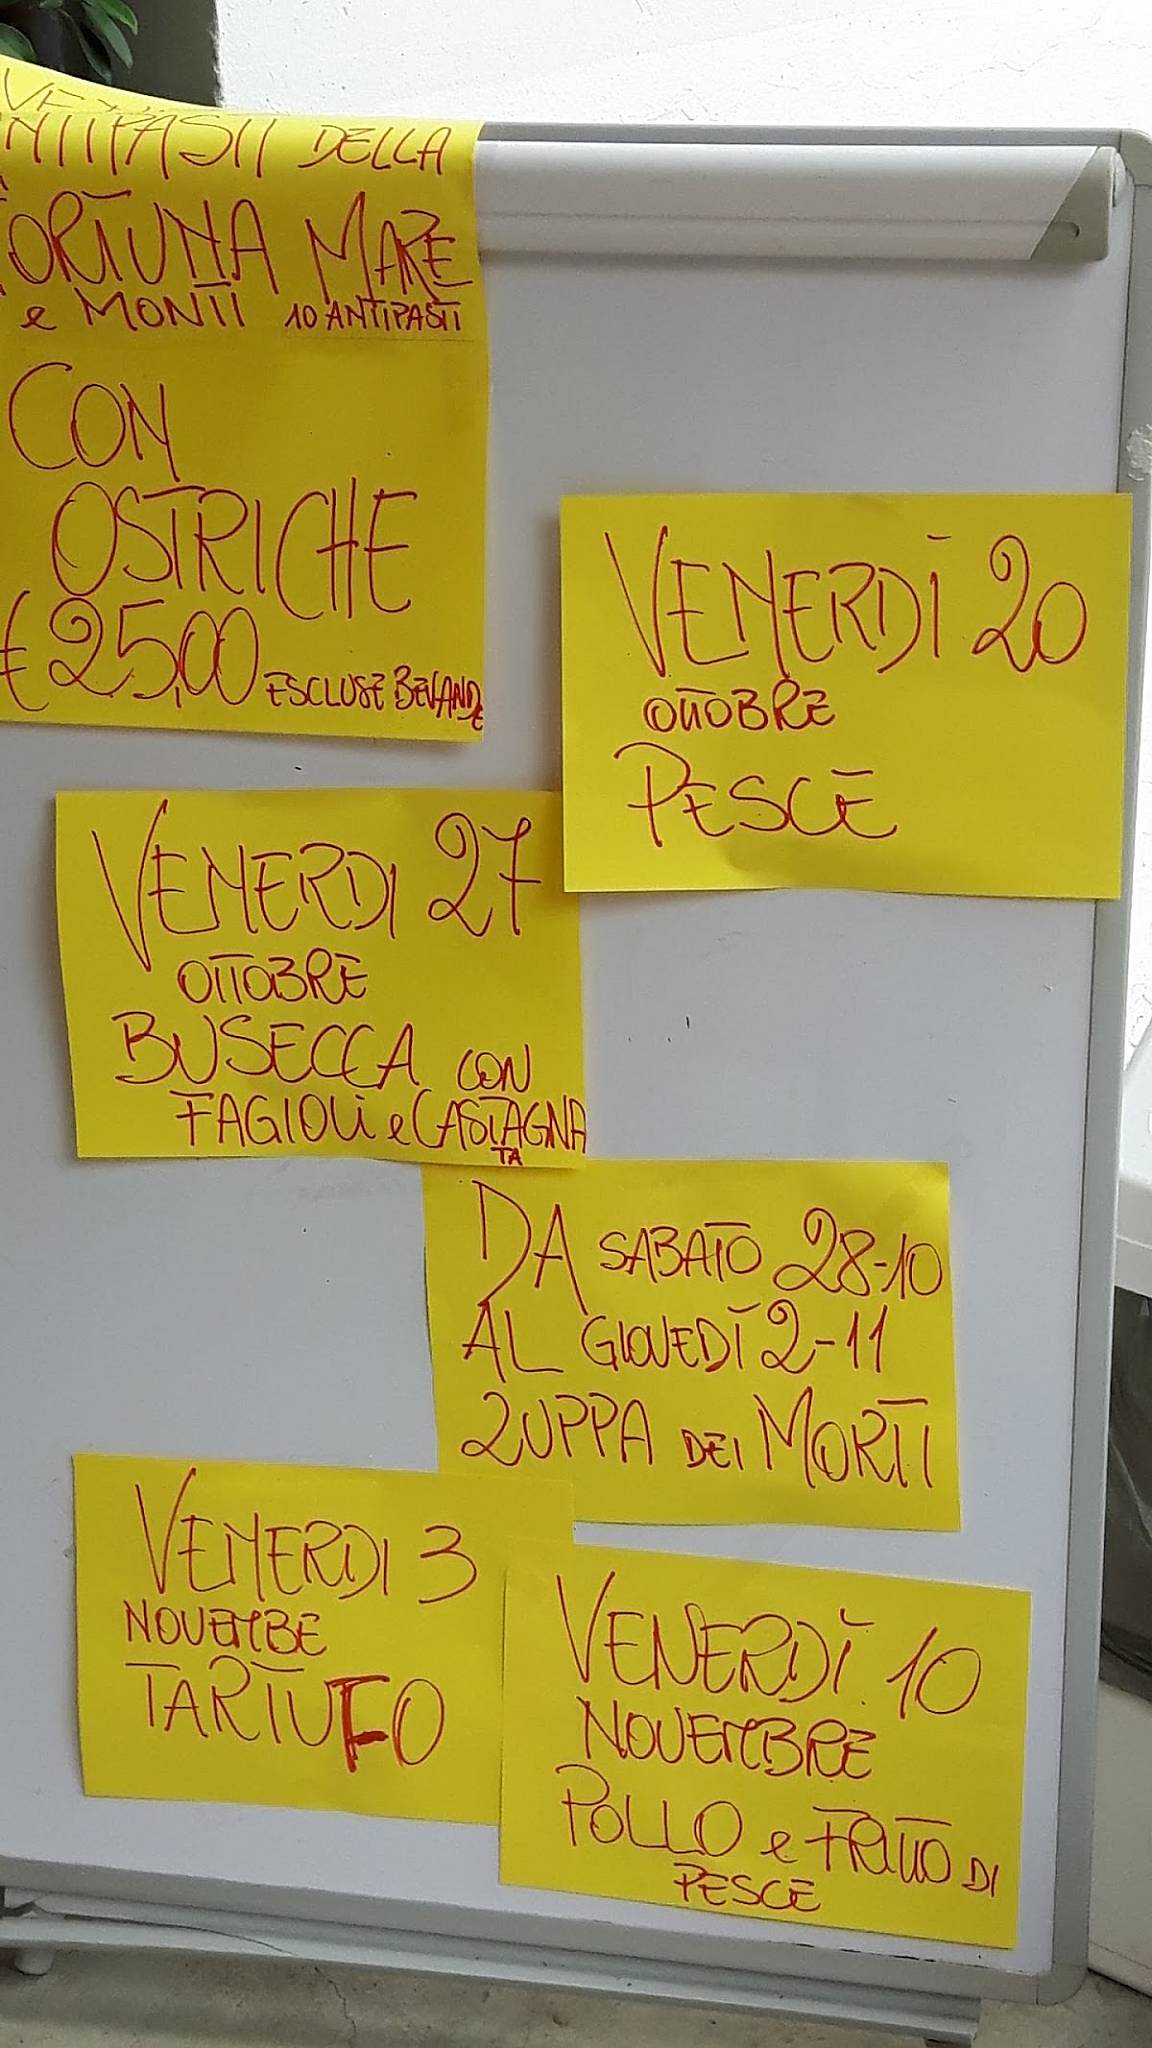 ANTIPASTI DELLA
FORTUNA MARE
e MONTI 10 ANTIPASTI
CON
OSTRICHE
€ 25,00 ESCLUSE BEVANDE
VENERDÌ 20
OTTOBRE
PESCE
VENERDI 27
OTTOBRE
BUSECCA CON
FAGIOLI e CASTAGNA
TA
DA SABATO 28-10
AL GIOVEDÌ 2-11
ZUPPA DEI MORTI
VENERDI 3
NOVEMBE
TARTUFO
VENERDÌ 10
NOVEMBRE
POLLO e FRITTO DI
PESCE